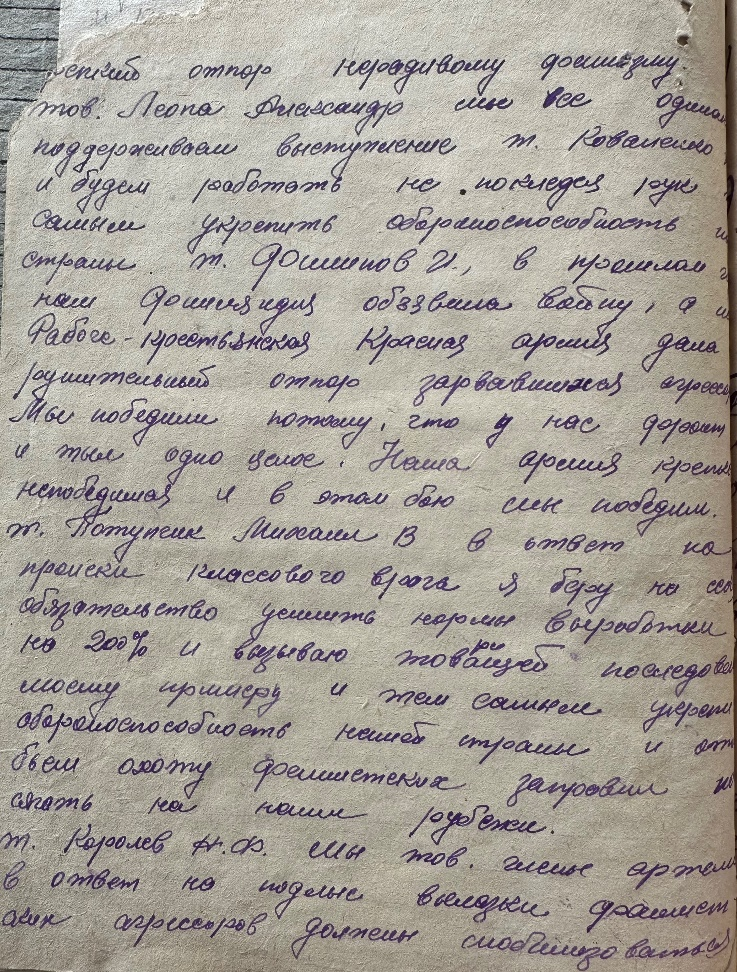 отпор нерадивому фашизму.
тов. Леопа Александр мы все
поддерживаем выступление т. Коваленко
и будем работать не покладая рук
самым укрепить обороноспособность
страны т. Фоминов И., в прошлом
нам Финляндия обзявила войну, а
Рабоче-крестьянская Красная армия дала
рушительный отпор зарвавшихся
Мы победили потому, что у нас фронт
и тыл одно целое. Наша армия
непобедимая и в этом бою мы победим.
т. Потупчик Михаил В в ответ на
происки классового врага я беру на
обязательство усилить нормы выработки
на 200% и вызываю товарищей
моему примеру и тем самым
обороноспособность нашей страны и
бьем охоту фашистских заправил
сягать на наши рубежи.
т. Королев Н.Ф. мы тов. члены
в ответ на подлые вылазки фашист
ских агрессоров должны мобилизоваться